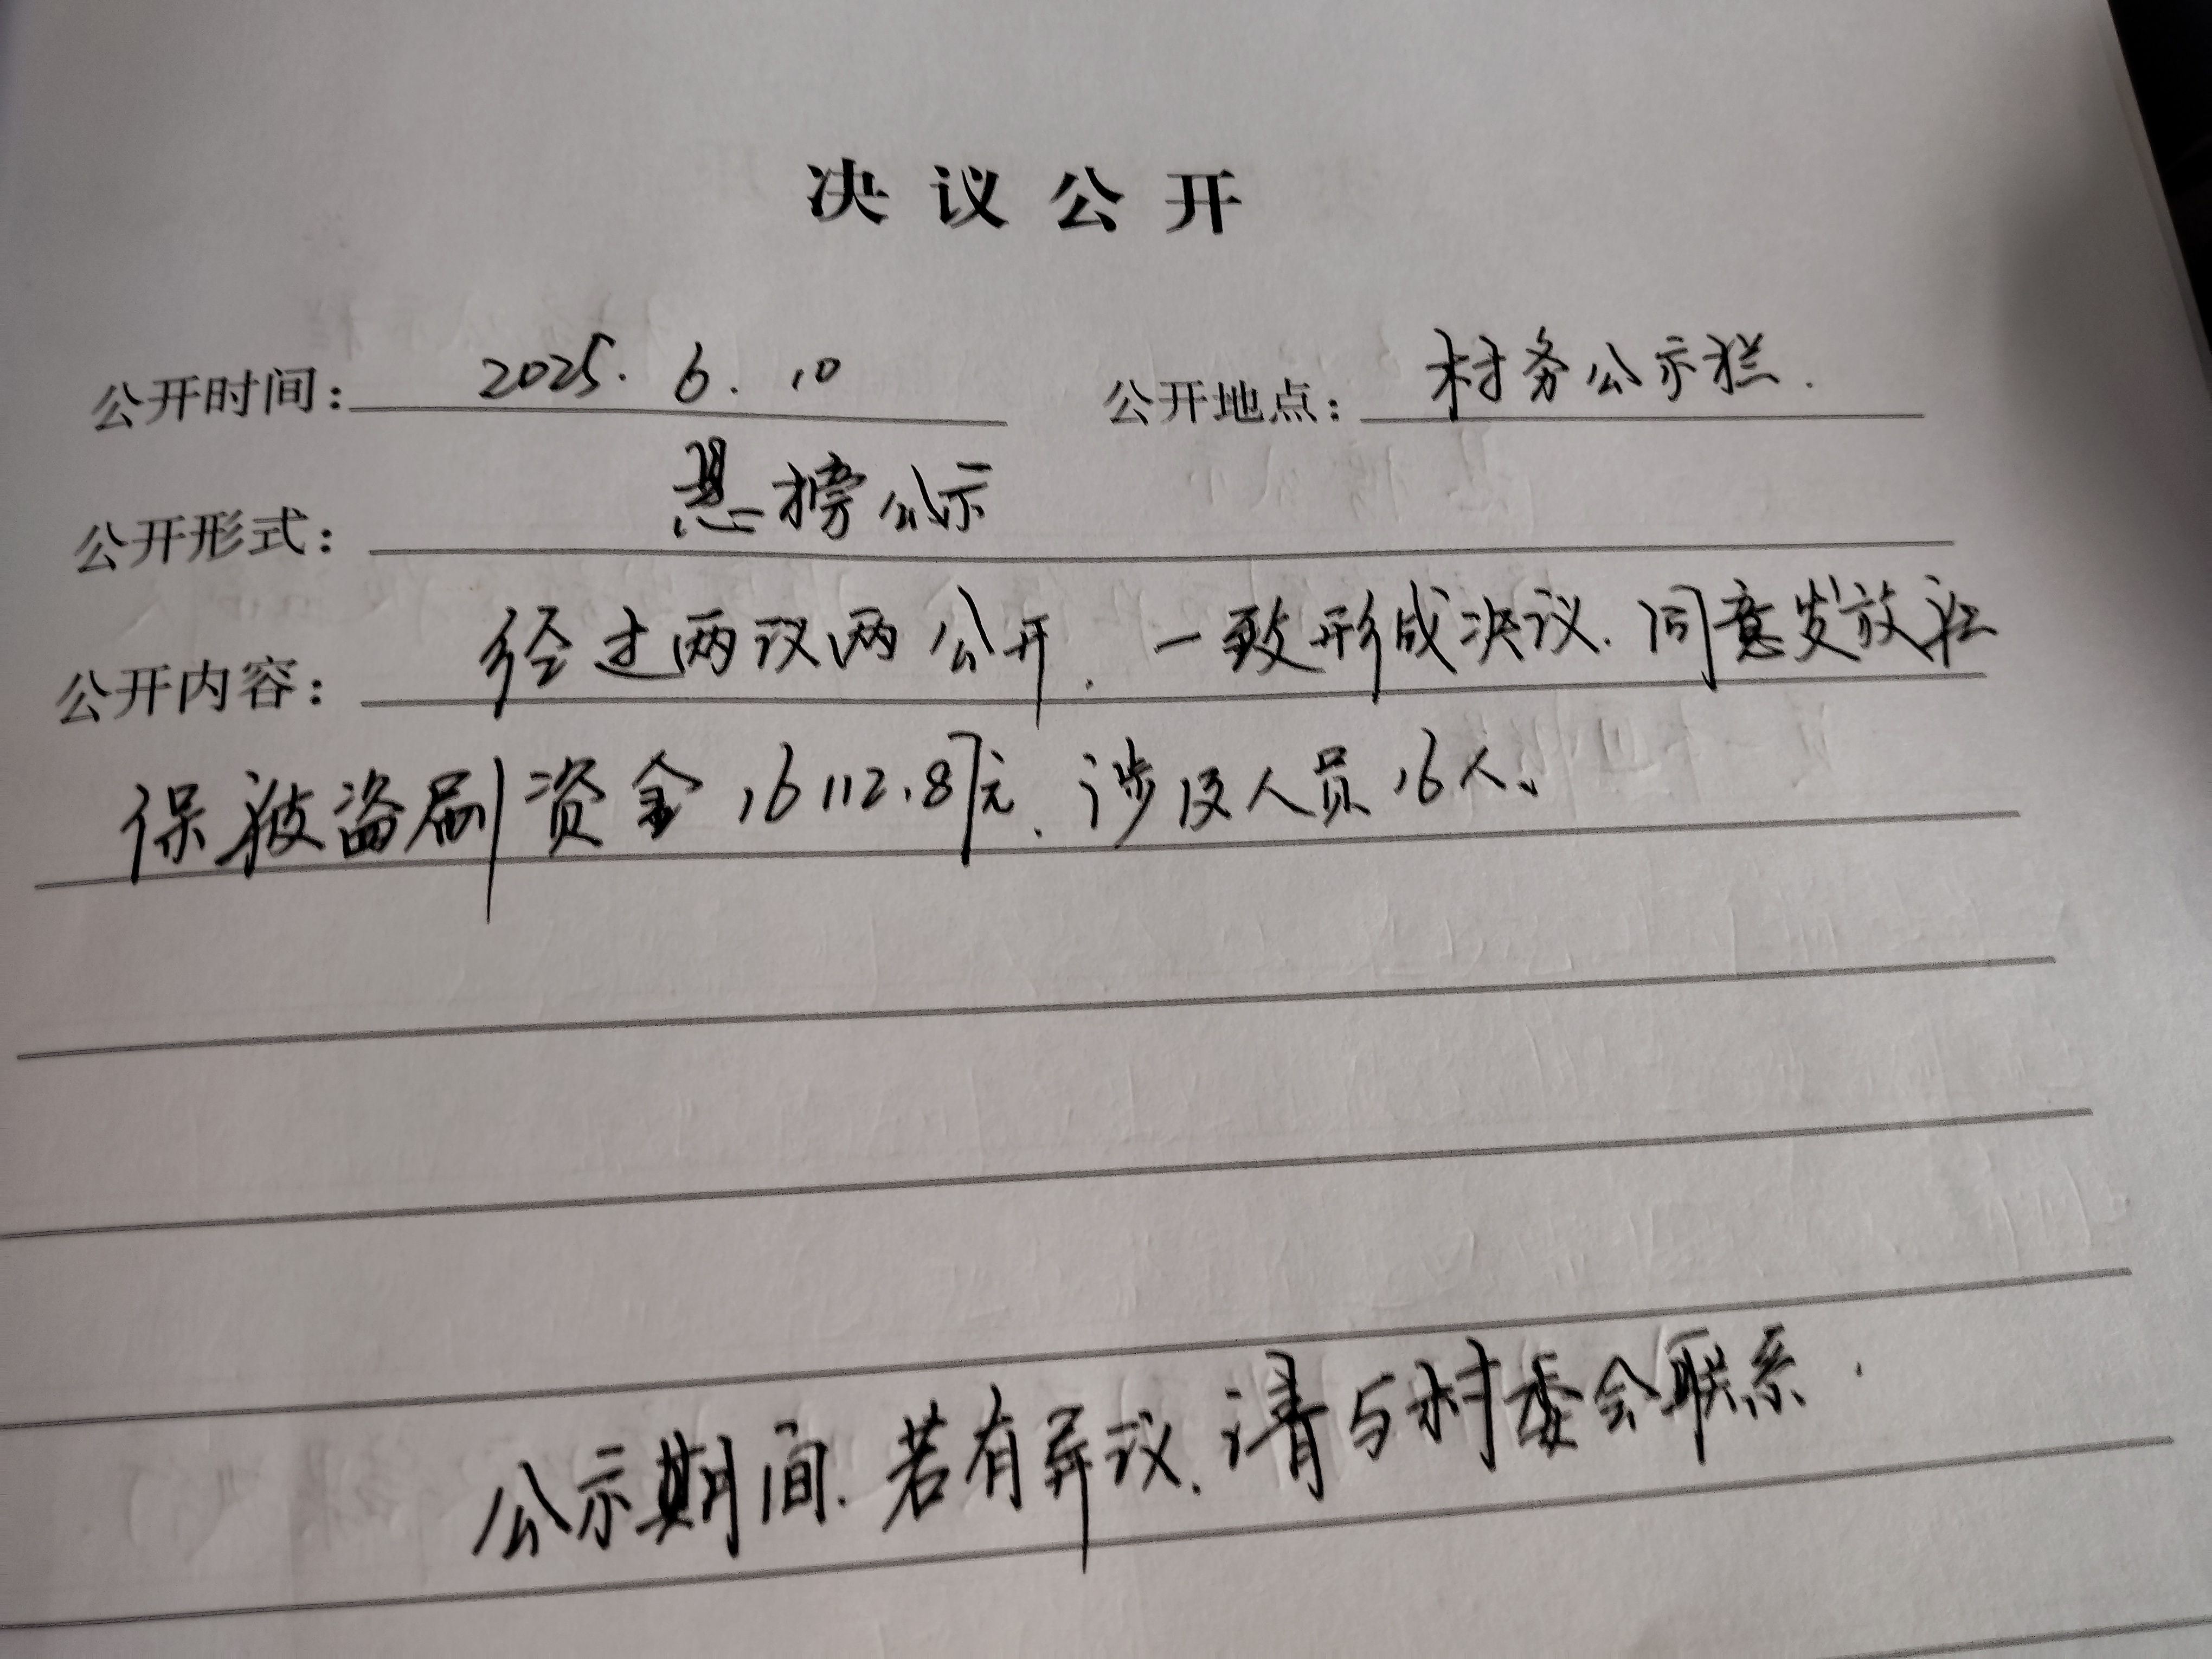 决议公开
公开时间: 2025. 6. 10 公开地点: 村务公示栏.
公开形式: 悬榜公示
公开内容: 经过两议两公开. 一致形成决议. 同意发放社
保被盗刷资金 16112.87元. 涉及人员 16人。
公示期间. 若有异议. 请与村委会联系.